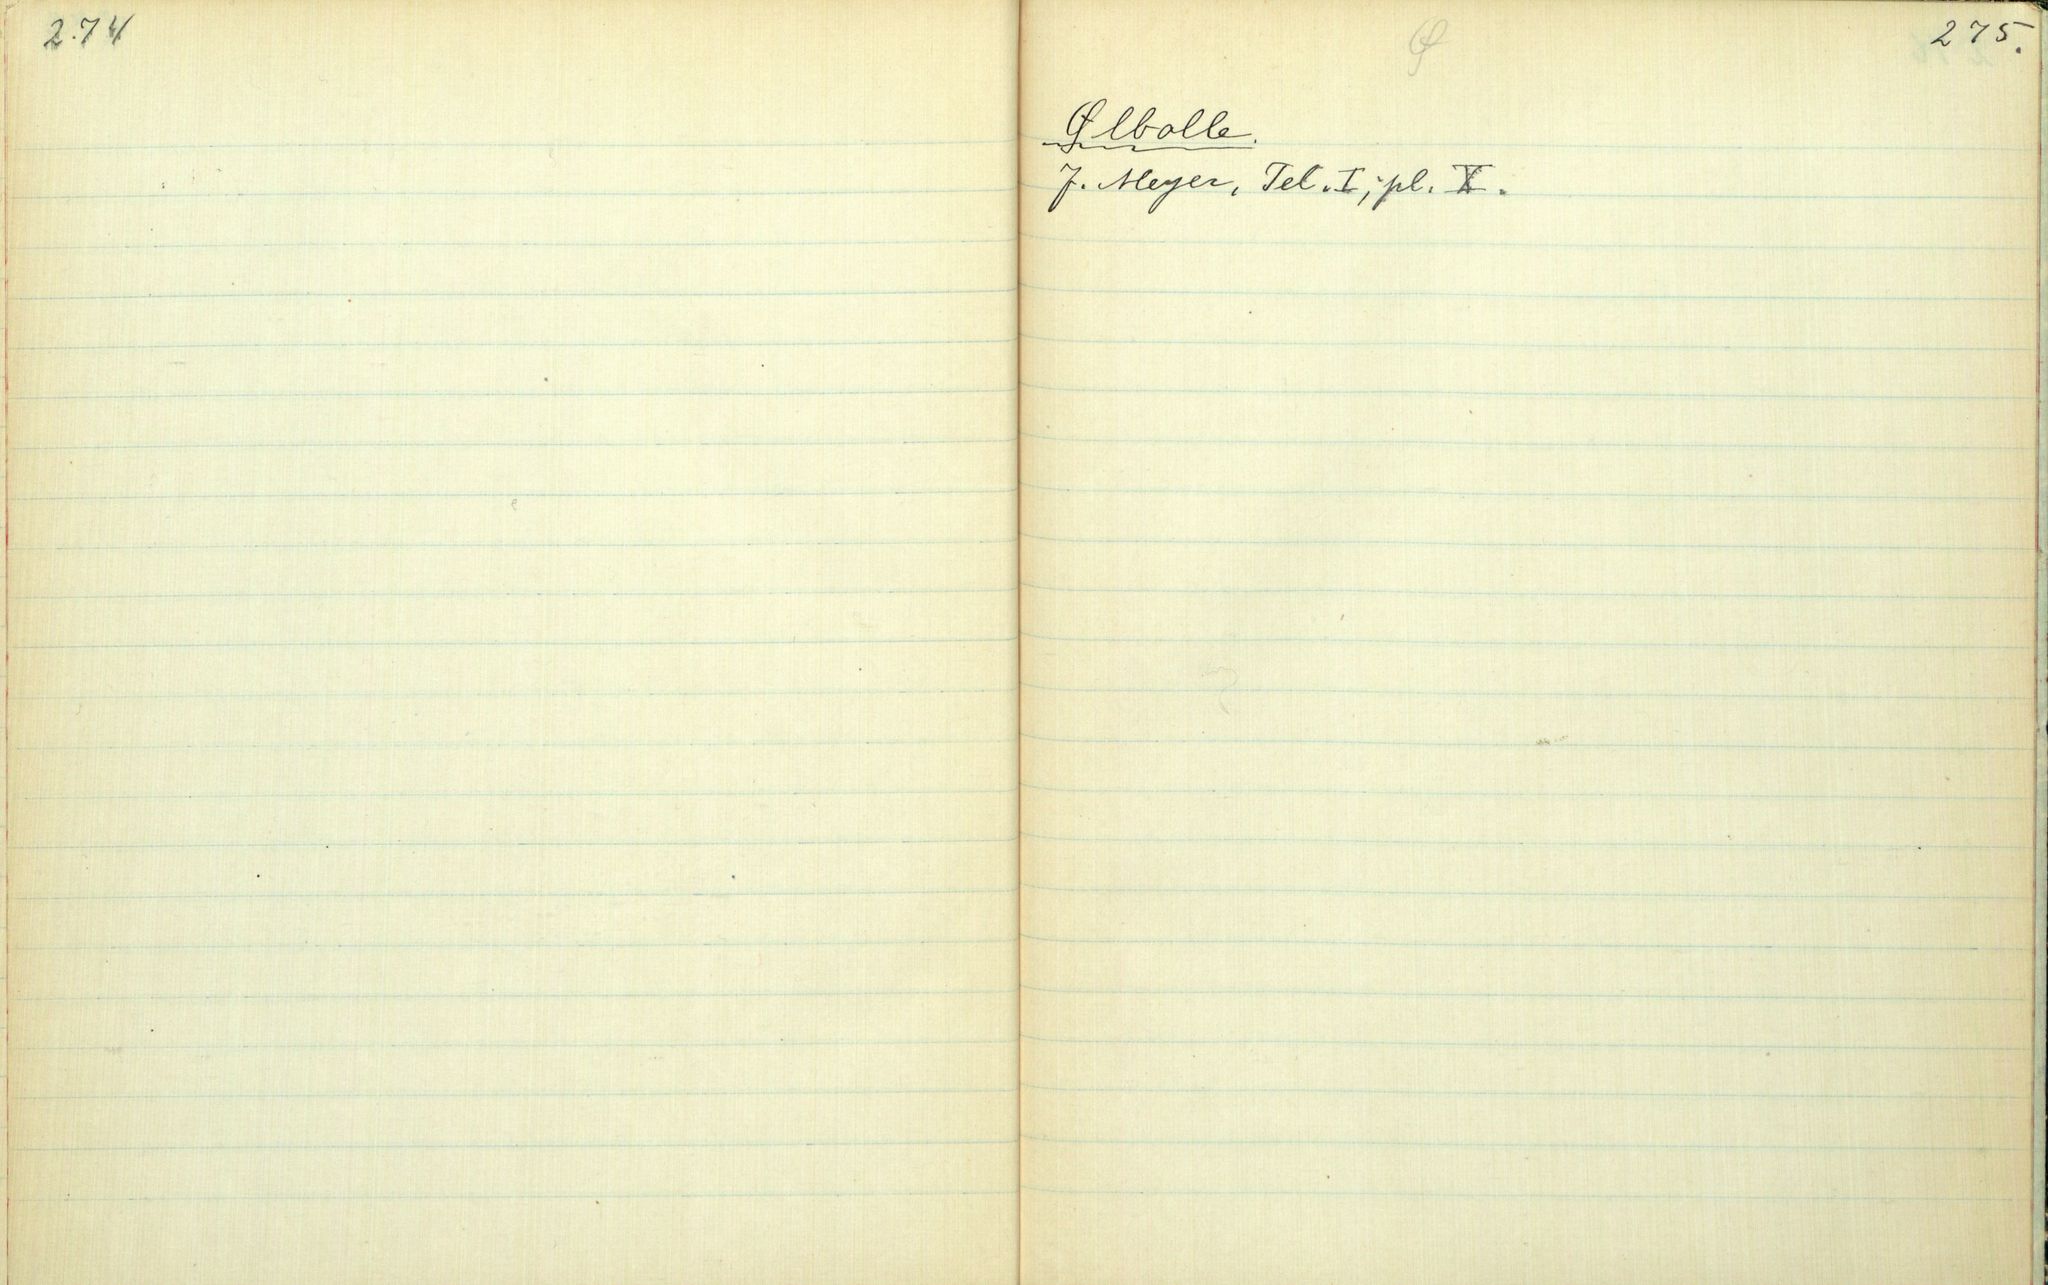 274
Ø
275.
Ølbolle.
J. Meyer, Tel. I, pl. X.